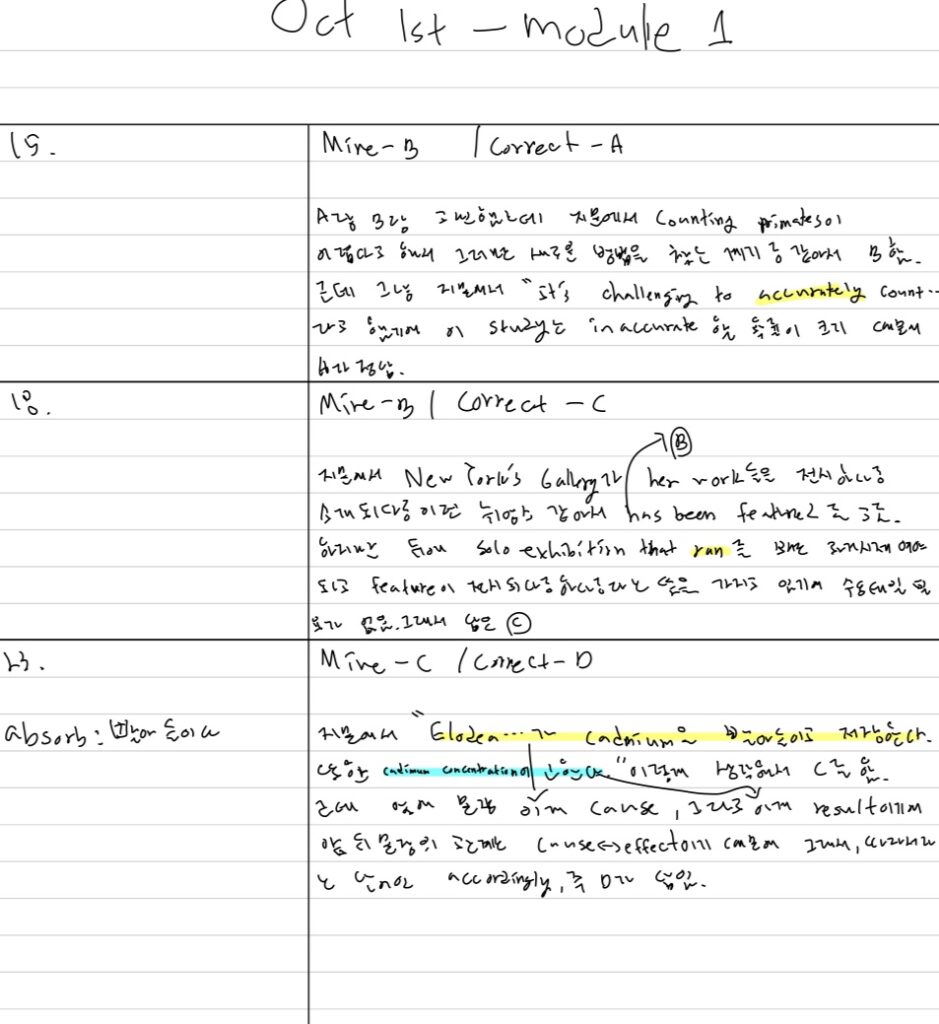 Oct 1st - module 1
15.
Mine-B / Correct - A
A랑 B랑 고민했는데 지문에서 Counting primates이
어렵다고 해서 그러면 새로운 방법을 찾는 얘기 같아서 B함.
근데 그냥 지문에서 "it's challenging to accurately count..
라고 했기에 이 study는 inaccurate 할 확률이 크기 때문에
A가 정답.
18.
Mine-B / Correct - C
B
지문에서 New York's Gallery가 her work들은 전시하
소개되다 이런 뉘앙스 같아서 has been featured 를 고름.
하지만 뒤에 solo exhibition that ran 를 보면 과거시제 여야
되고 feature이 뜻을 가지고 있기에 수동태일 필
요가 없음. 그래서 답은 C
23.
Mine - C / Correct - D
absorb: 받아들이다
지문에서 "Elodea... 가 cadmium을 받아들이고 저장한다.
또한 cadmium concentration이 "이렇게 생각해서 C를 함.
근데 앞에 문장 이게 cause, 그리고 이게 result이기에
앞 뒤 문장의 관계는 cause↔effect이기 때문에 그래서, 따라서라
는 단어인 accordingly, 즉 D가 답임.